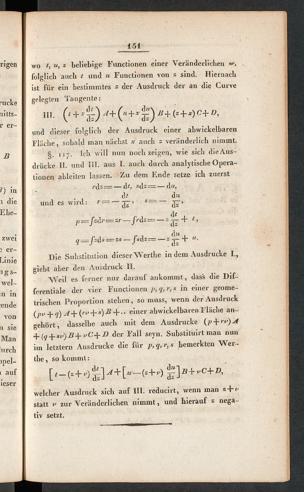 151
wo t, u, z beliebige Functionen einer Veränderlichen w,
folglich auch t und u Functionen von z sind. Hiernach
ist für ein bestimmtes z der Ausdruck der an die Curve
gelegten Tangente:
III. (t + z dt/dz) A + (u + z du/dz) B + (z + z) C + D,
und dieser folglich der Ausdruck einer abwickelbaren
Fläche, sobald man nächst z auch z veränderlich nimmt.
§. 117. Ich will nun noch zeigen, wie sich die Aus-
drücke II. und III. aus I. auch durch analytische Opera-
tionen ableiten lassen. Zu dem Ende setze ich zuerst
rdz = — dt, sdz = — du,
und es wird: r = — dt/dz, s = — du/dz,
p = ∫zdr = zr — ∫rdz = — z dt/dz + t,
q = ∫zds = zs — ∫sdz = — z du/dz + u.
Die Substitution dieser Werthe in dem Ausdrucke I.,
giebt aber den Ausdruck II.
Weil es ferner nur darauf ankommt, dass die Dif-
ferentiale der vier Functionen p, q, r, s in einer geome-
trischen Proportion stehen, so muss, wenn der Ausdruck
(pv + q) A + (rv + s) B + .. einer abwickelbaren Fläche an-
gehört, dasselbe auch mit dem Ausdrucke (p + rv) A
+ (q + sv) B + vC + D der Fall seyn. Substituirt man nun
im letztern Ausdrucke die für p, q, r, s bemerkten Wer-
the, so kommt:
[t — (z + v) dt/dz] A + [u — (z + v) du/dz] B + vC + D,
welcher Ausdruck sich auf III. reducirt, wenn man z + v
statt v zur Veränderlichen nimmt, und hierauf z nega-
tiv setzt.